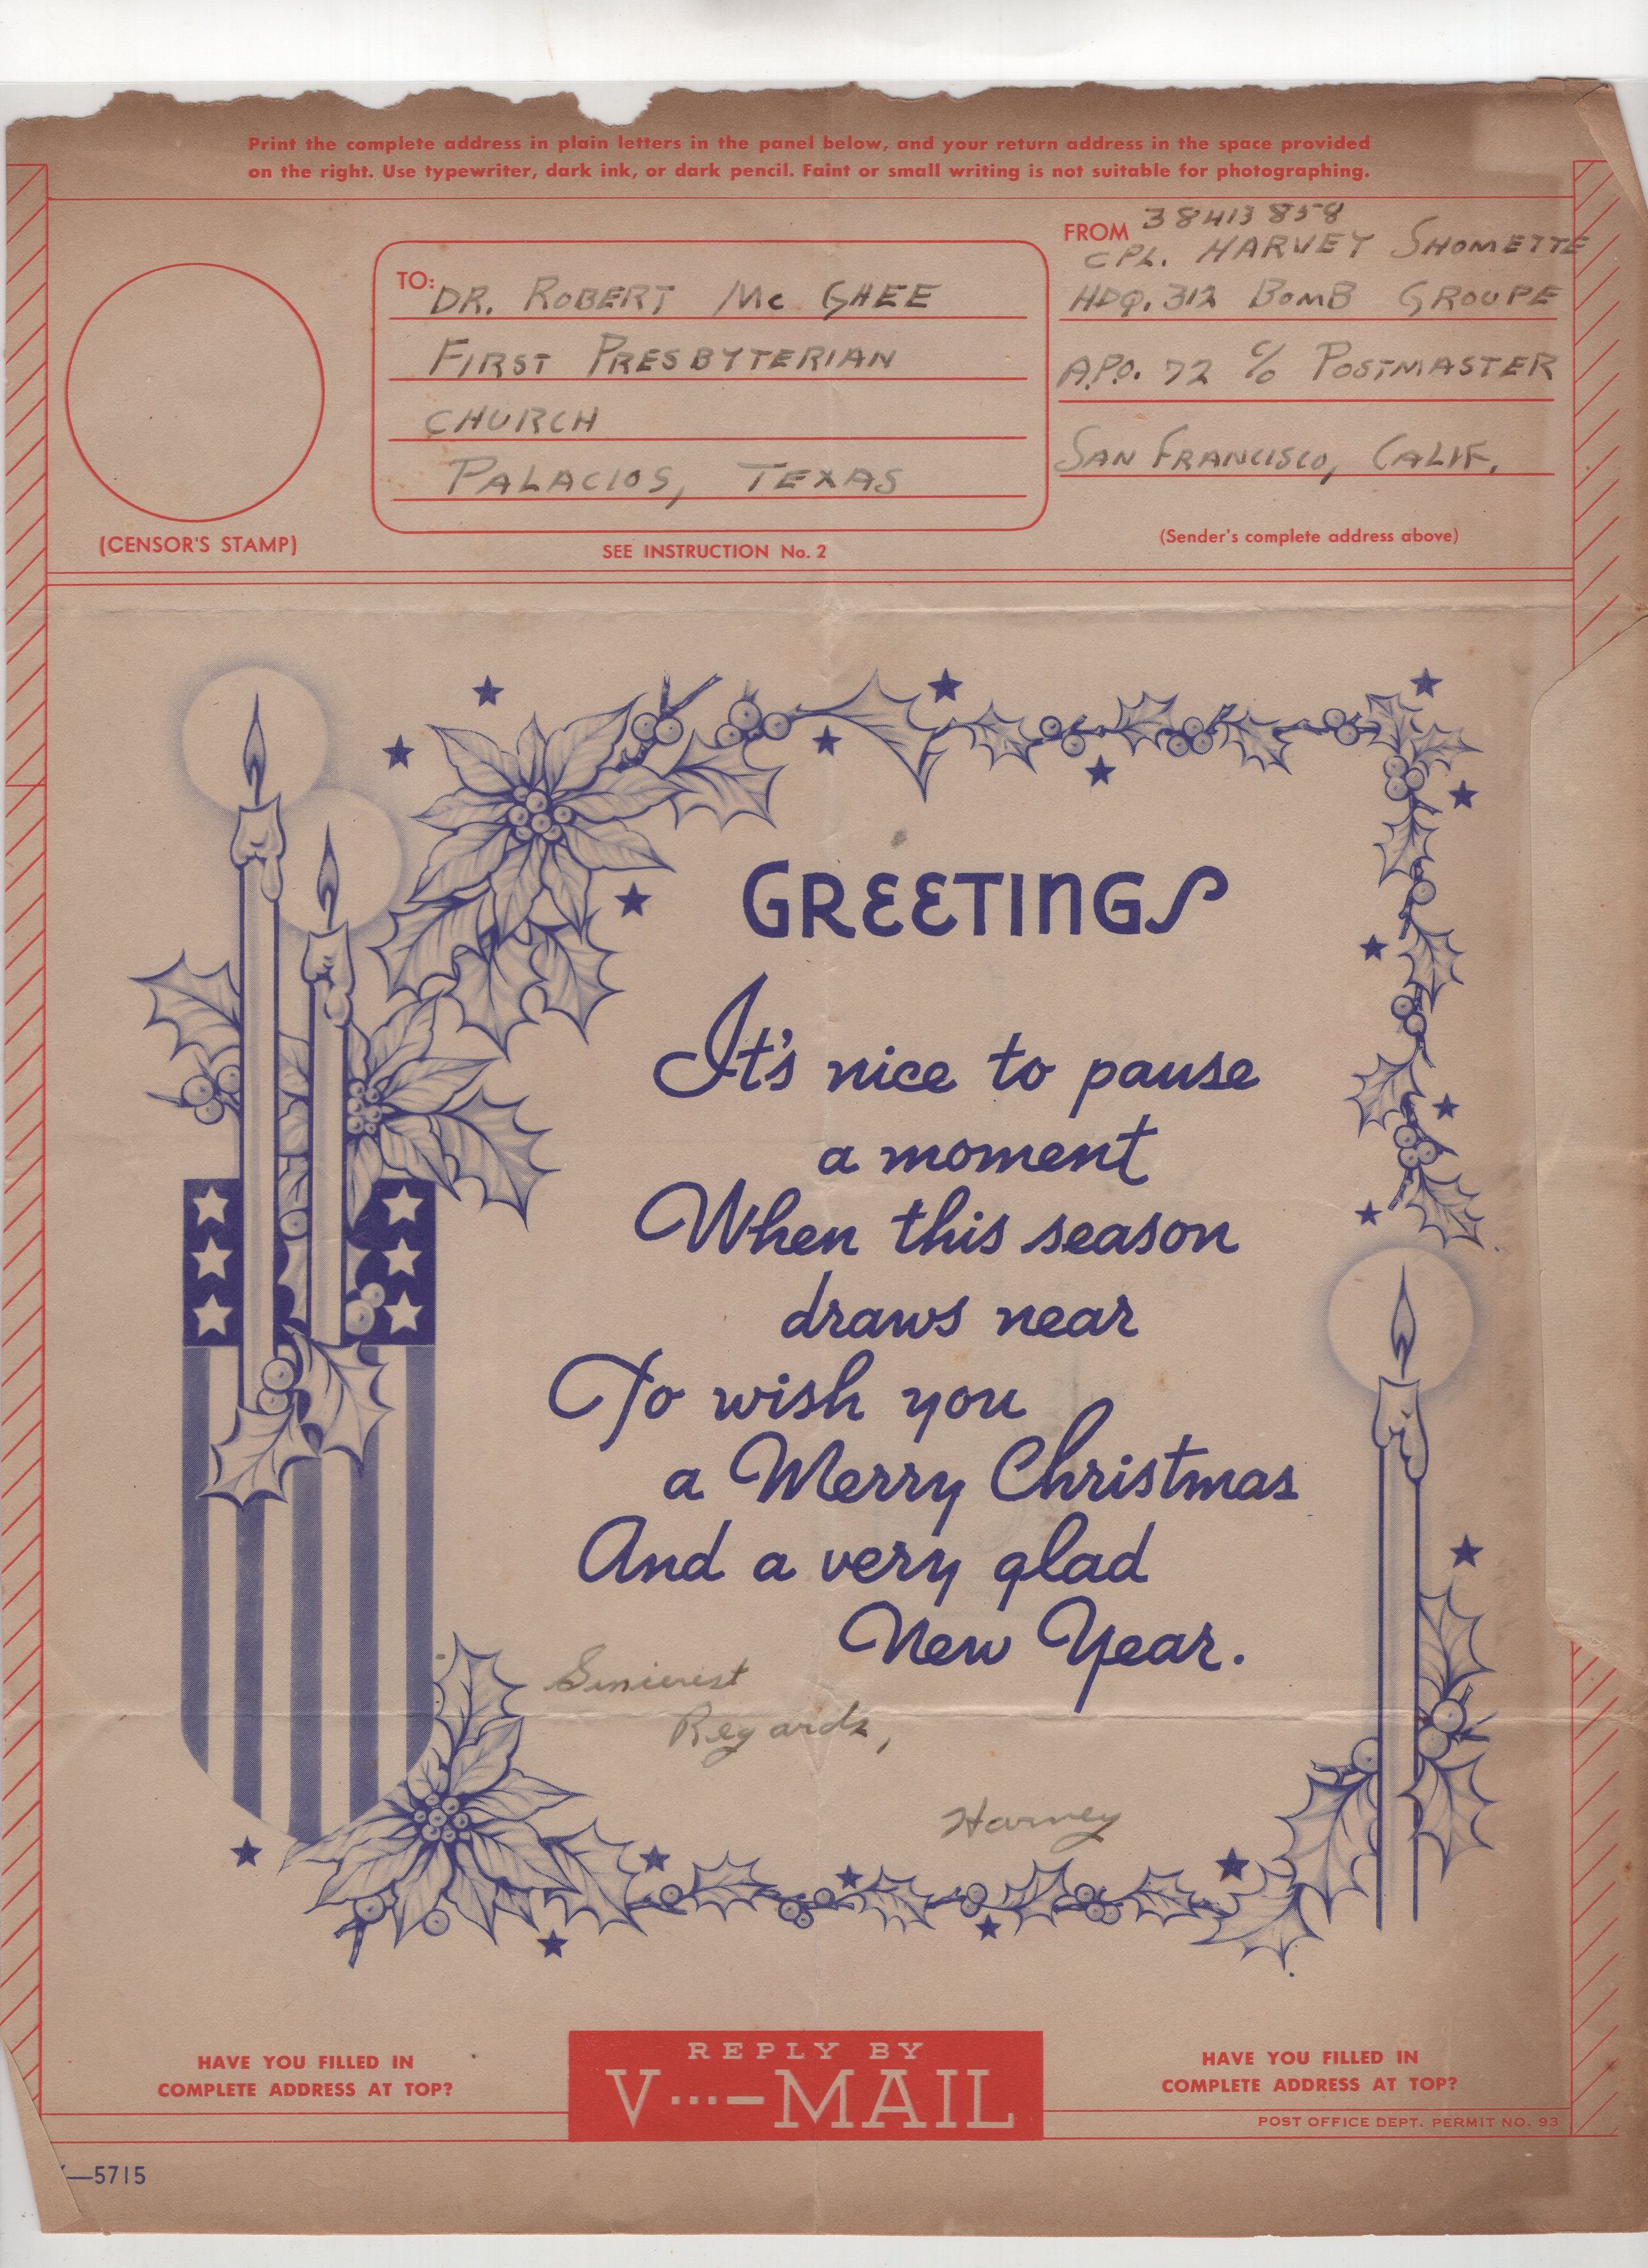 Print the complete address in plain letters in the panel below, and your return address in the space provided
on the right. Use typewriter, dark ink, or dark pencil. Faint or small writing is not suitable for photographing.
TO:
DR. ROBERT Mc GHEE
FIRST PRESBYTERIAN
CHURCH
PALACIOS, TEXAS
FROM 38413858
CPL. HARVEY SHOMETTE
HDQ. 312 BOMB GROUPE
A.P.O. 72 c/o POSTMASTER
SAN FRANCISCO, CALIF.
(CENSOR'S STAMP)
SEE INSTRUCTION No. 2
(Sender's complete address above)
GREETINGS
It's nice to pause
a moment
When this season
draws near
To wish you
a Merry Christmas
And a very glad
New Year.
Sincerist
Regards,
Harvey
HAVE YOU FILLED IN
COMPLETE ADDRESS AT TOP?
REPLY BY
V···—MAIL
HAVE YOU FILLED IN
COMPLETE ADDRESS AT TOP?
POST OFFICE DEPT. PERMIT NO. 93
—5715